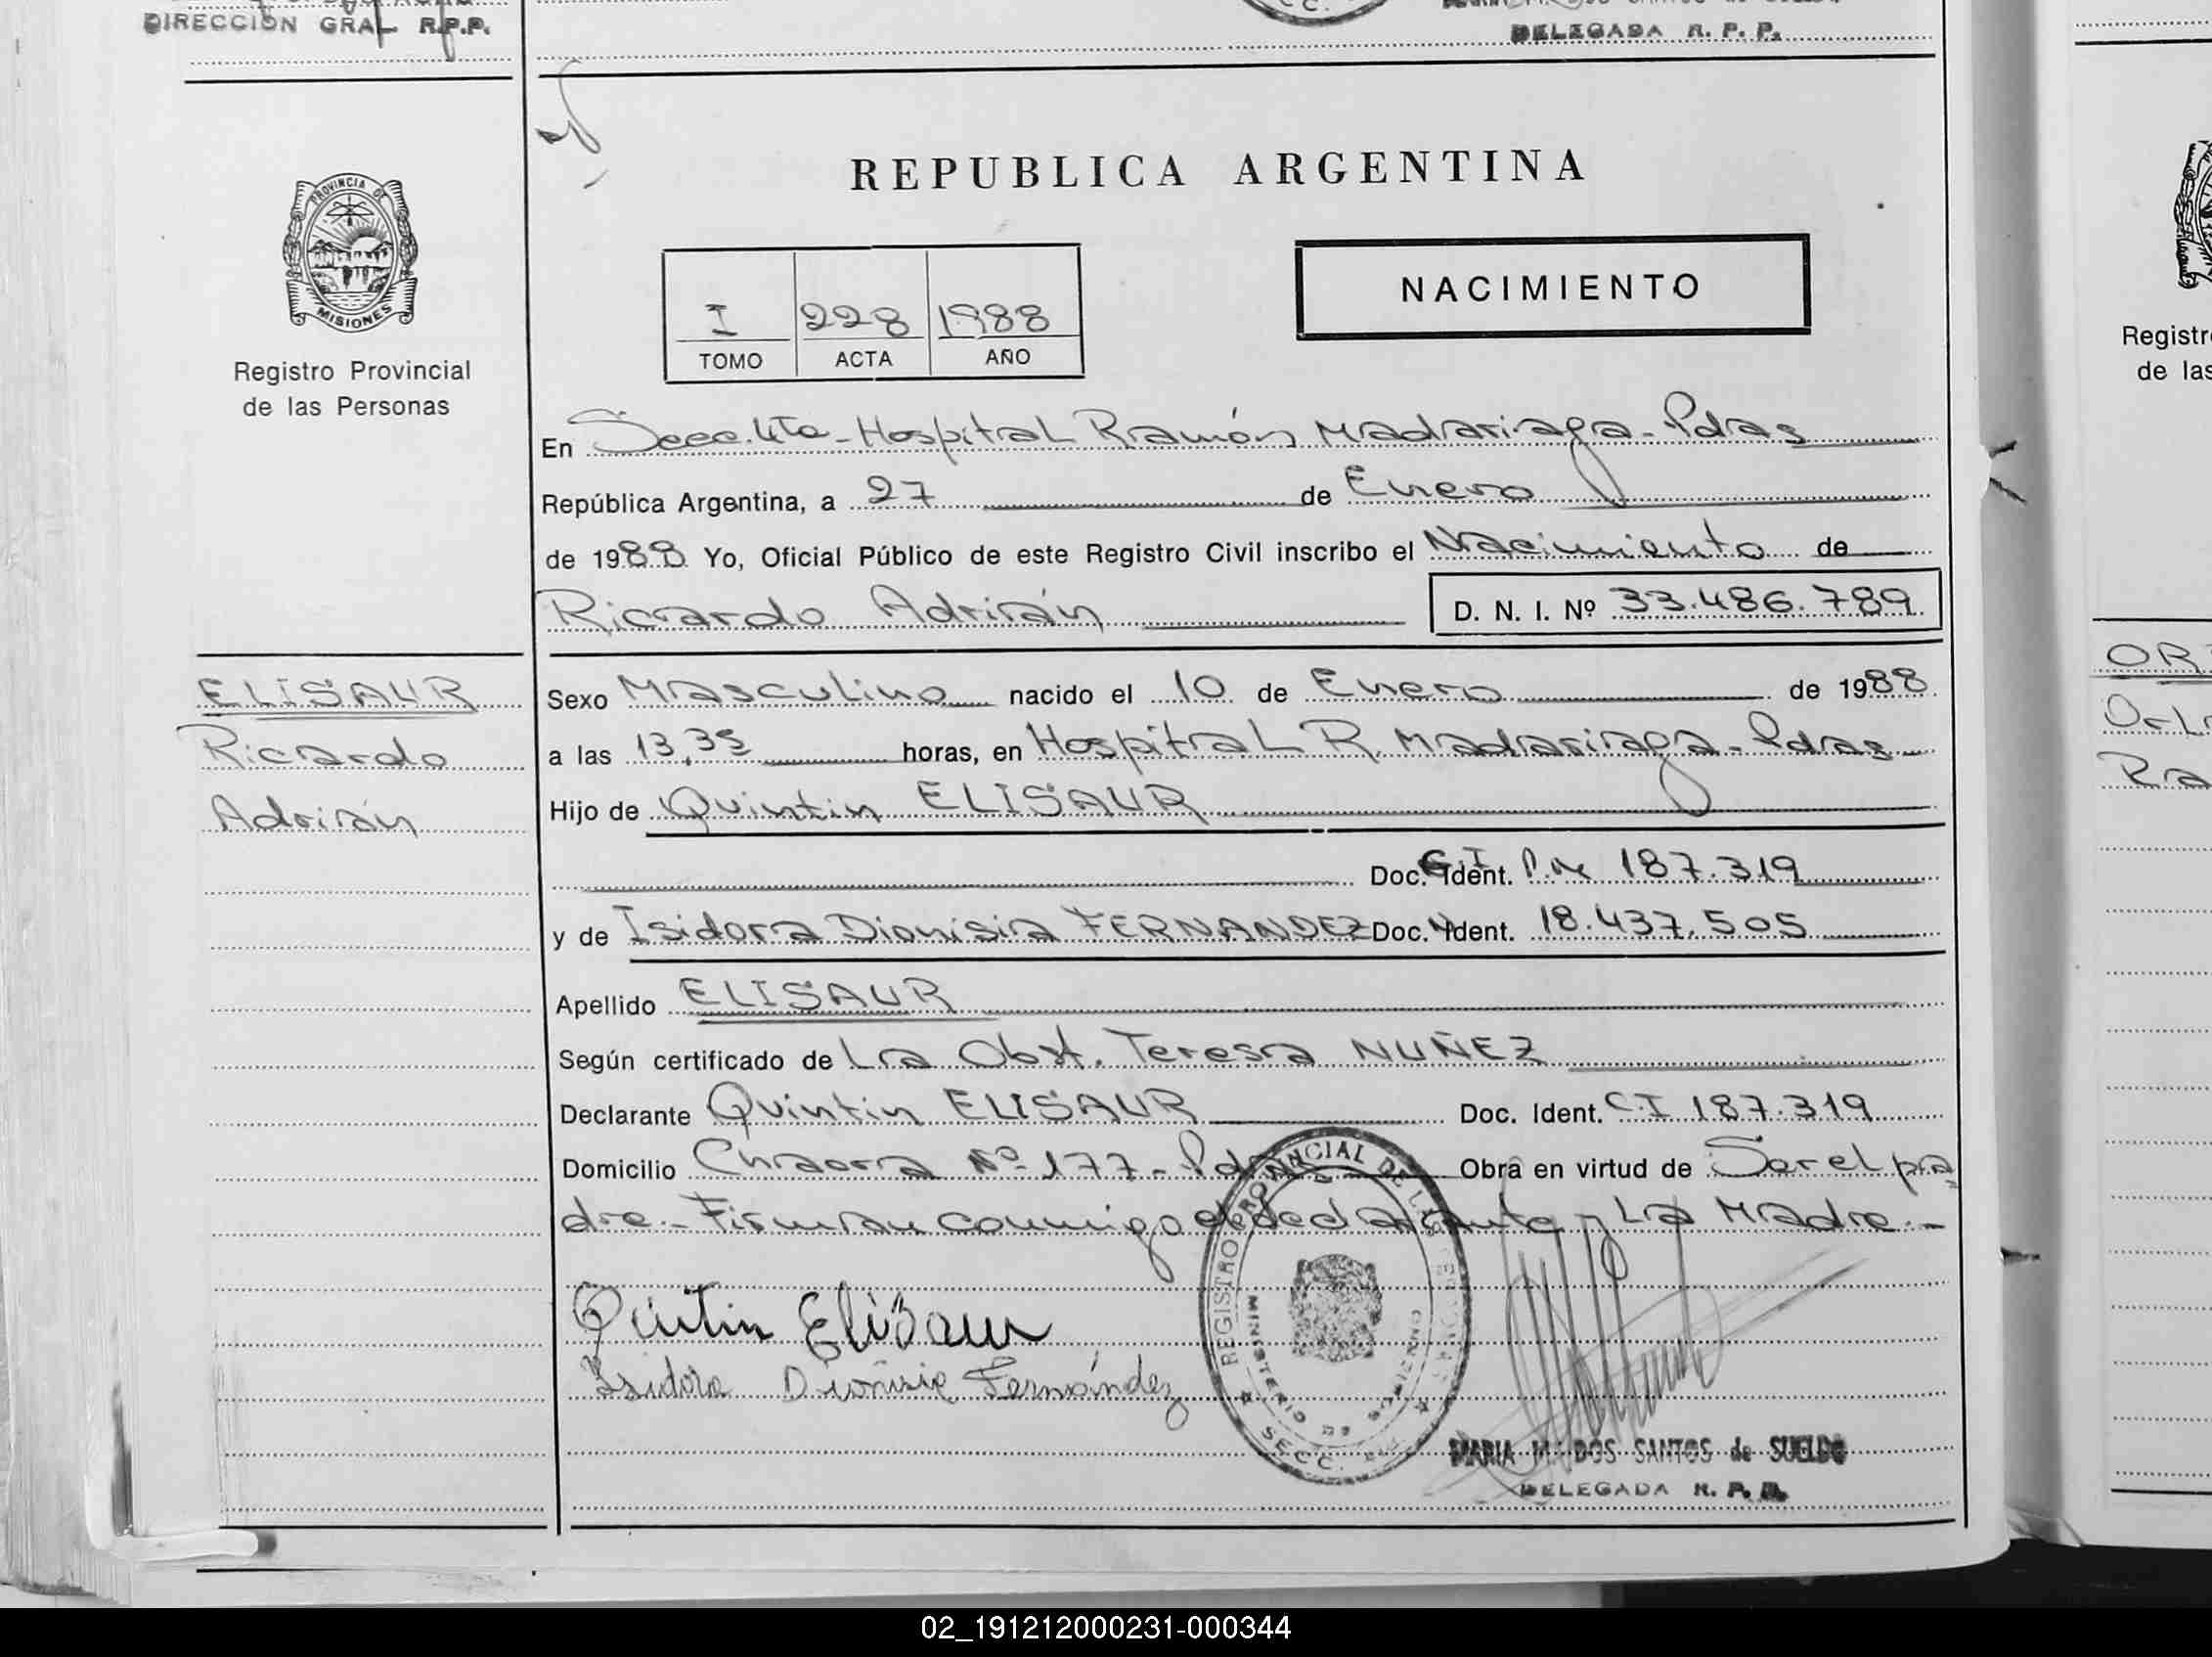 DIRECCION GRAL R.P.P.
DELEGADA R. P. P.
REPUBLICA ARGENTINA
PROVINCIA DE
MISIONES
Registro Provincial
de las Personas
NACIMIENTO
I 228 1988
TOMO ACTA AÑO
En Secc. 4ta - Hospital Ramón Madariaga - Pdas
República Argentina, a 27 de Enero
de 1988 Yo, Oficial Público de este Registro Civil inscribo el Nacimiento de
Ricardo Adrián D. N. I. Nº 33.486.789
ELISAUR
Ricardo
Adrián
Sexo Masculino nacido el 10 de Enero de 1988
a las 13,35 horas, en Hospital R. Madariaga - Pdas -
Hijo de Quintin ELISAUR
Doc. Ident. C.I. 187.319
y de Isidora Dionisia FERNANDEZ Doc. Ident. 18.437.505
Apellido ELISAUR
Según certificado de La Obst. Teresa NUÑEZ
Declarante Quintin ELISAUR Doc. Ident. C.I 187.319
Domicilio Chacra Nº 177 - Pdas Obra en virtud de Ser el pa
dre - Firman conmigo el declarante y La Madre -
Quintin Elisaur
Isidora Dionisia Fernández
REGISTRO PROVINCIAL DE LAS PERSONAS
MINISTERIO DE
SECC.
MARIA M. DOS SANTOS de SUELDO
DELEGADA R. P. P.
Registr
de las
OR
Orl
Ra
02_191212000231-000344